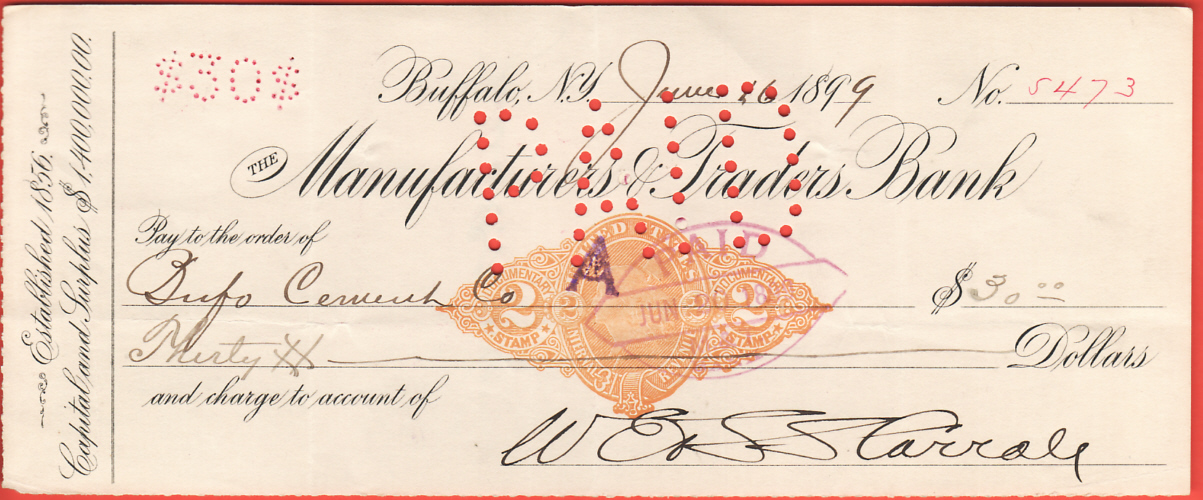 Established 1856.
Capital and Surplus $1,400,000.00.
$30$
Buffalo, N.Y. June 26 1899 No. 5473
PAID
THE Manufacturers & Traders Bank
Pay to the order of
Bufo Cement Co $30 00
Thirty Dollars
and charge to account of
DOCUMENTARY
2 2
STAMP
A
PAID
JUN
DOCUMENTARY
2 2
STAMP